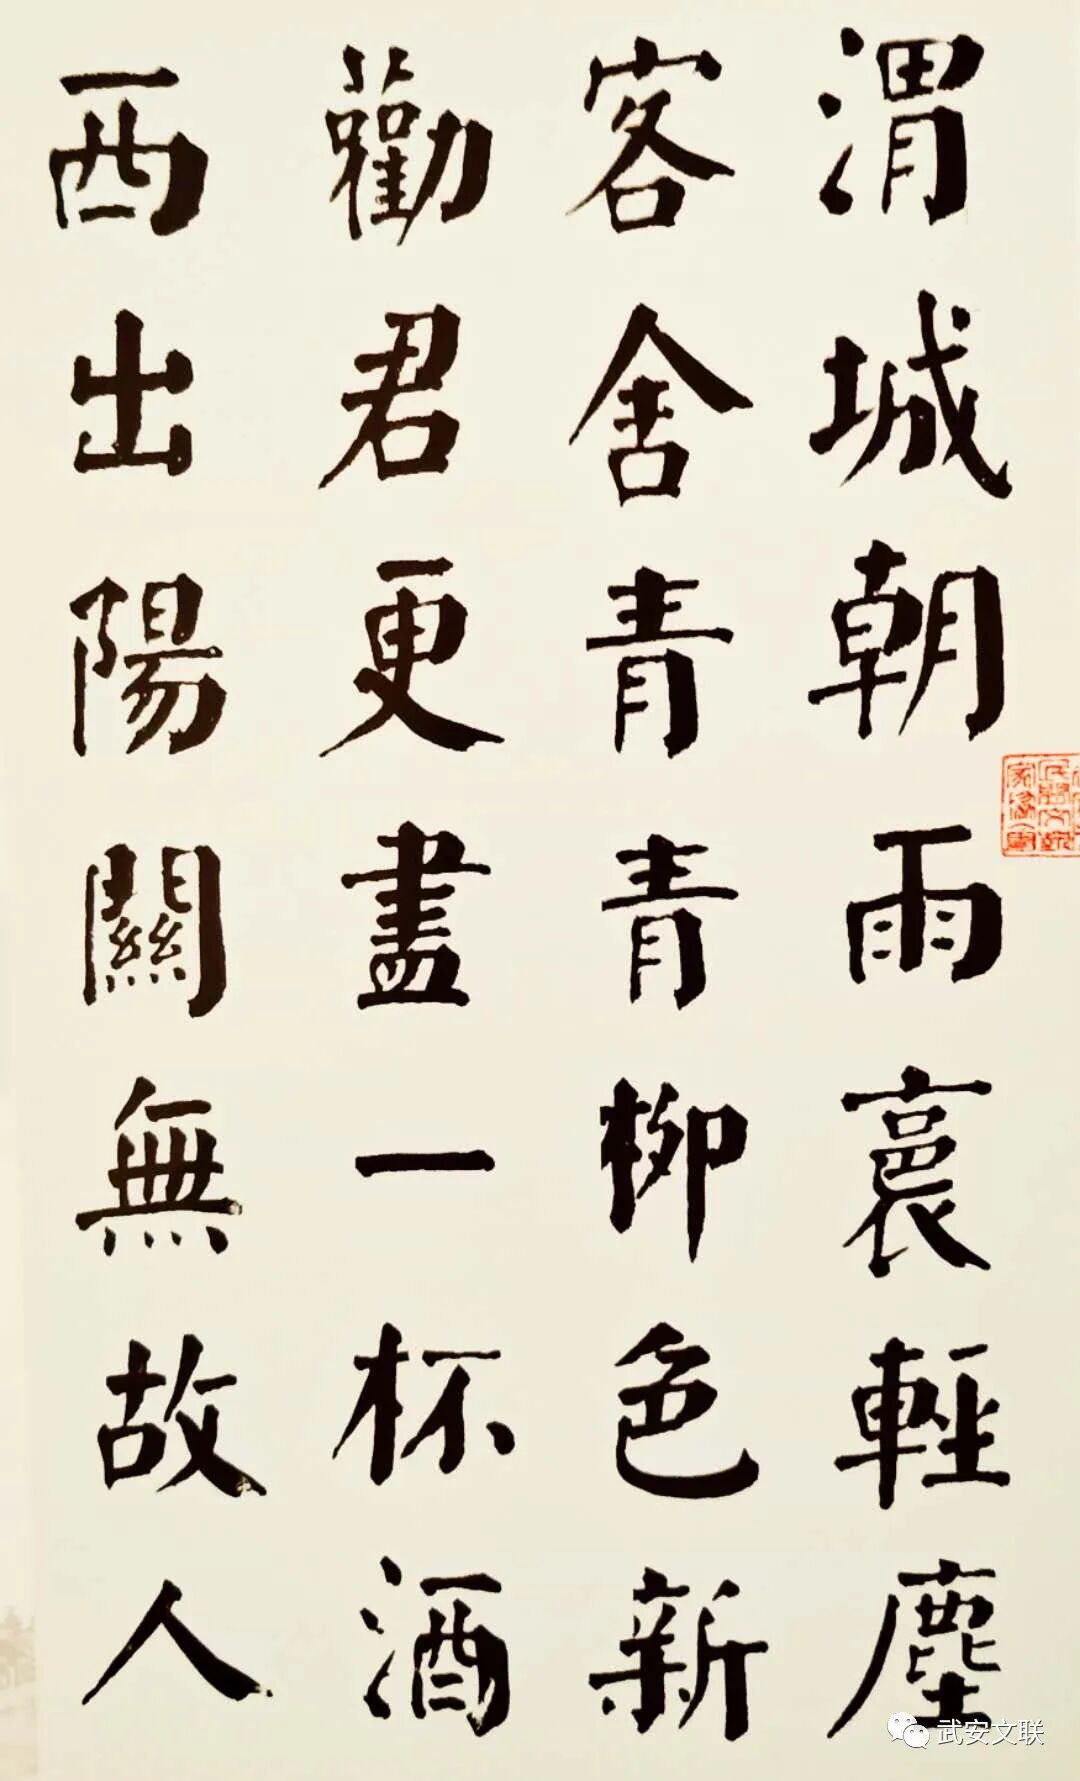 渭城朝雨裛輕塵
客舍青青柳色新
勸君更盡一杯酒
西出陽關無故人
武安文联